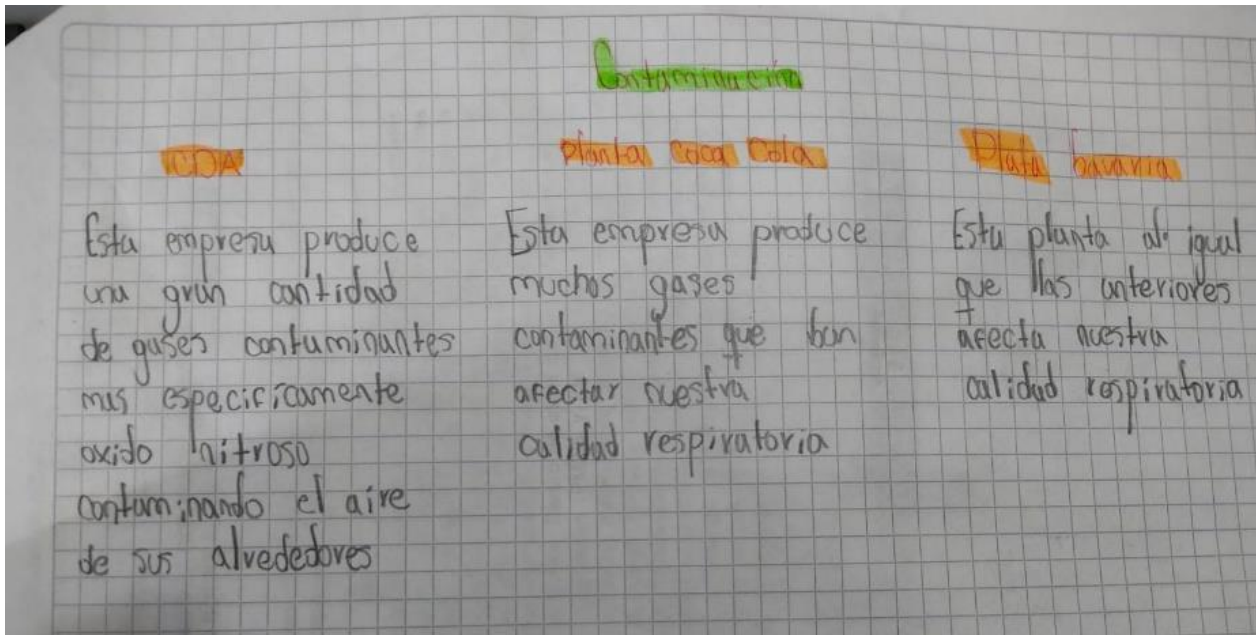 Contaminación
CDA
Esta empresa produce
una gran cantidad
de gases contaminantes
mas especificamente
oxido nitroso
contaminando el aire
de sus alrededores
planta coca cola
Esta empresa produce
muchos gases
contaminantes que ban
afectar nuestra
calidad respiratoria
Plata bavaria
Esta planta al igual
que las anteriores
afecta nuestra
calidad respiratoria